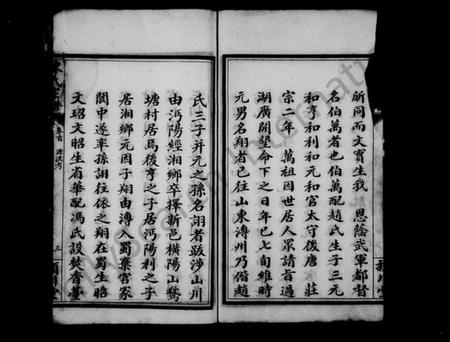 所同而文寶生我　恩蔭武軍都督
名伯萬者也伯萬配趙氏生子三元
和亨和利和元和官太守後唐　莊
宗二年　萬祖因世居人眾請旨過
湖廣開墾命下之日年已七旬維時
元男名翔者已往山東溥州乃偕趙
氏三子并元之孫名詡者跋涉山川
由沔陽經湘鄉卒擇新邑橫陽山鵞
塘村居焉後亨之子居沔陽利之子
居湘鄉元因子翔由溥入蜀棄官家
閬中遂率孫詡往依之翔在蜀生昭
文玿文昭生省華配馮氏設焚香臺